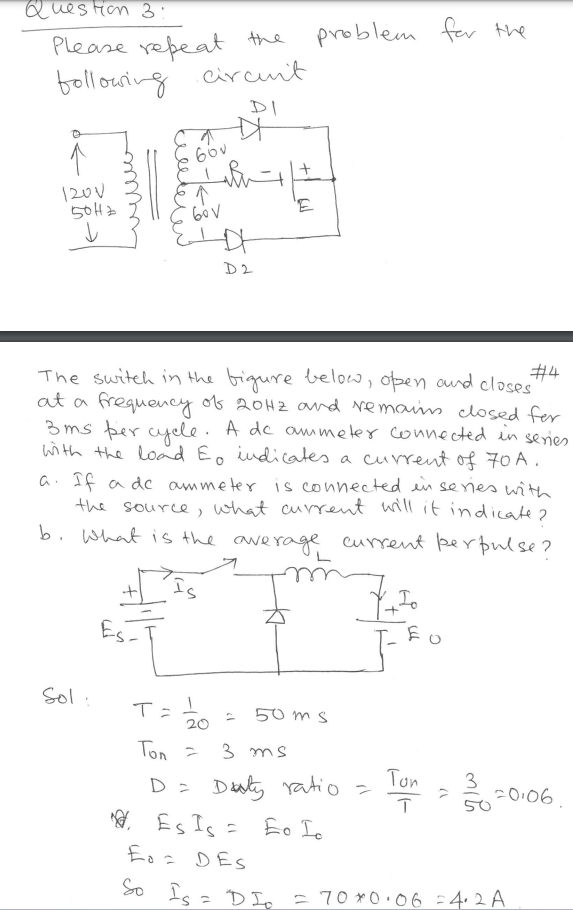 Question 3:
Please repeat the problem for the
following circuit
D1
60V
R - + E
120V
50Hz
60V
D2
#4
The switch in the figure below, open and closes
at a frequency of 20Hz and remains closed for
3ms per cycle. A dc ammeter connected in series
with the load Eo indicates a current of 70A.
a. If a dc ammeter is connected in series with
the source, what current will it indicate?
b. What is the average current per pulse?
L
+ Is
+ Io
Es -
- Eo
Sol:
T = 1/20 = 50 ms
Ton = 3 ms
D = Duty ratio = Ton/T = 3/50 = 0.06.
Es Is = Eo Io
Eo = DEs
So Is = DIo = 70*0.06 = 4.2A